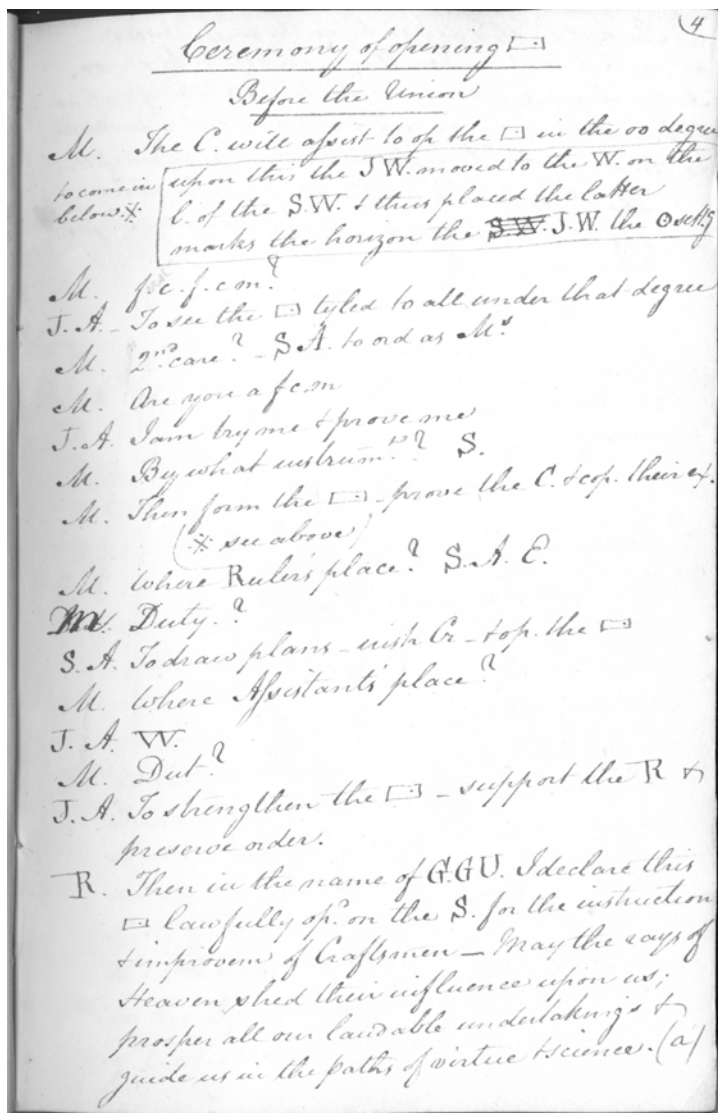 4
Ceremony of opening ▭
Before the Union
M. The C. will assist to op the ▭ in the oo degree
to come in below ※
upon this the J.W. moved to the W. on the
l. of the S.W. & thus placed the latter
marks the horizon the S.W. J.W. the ⊙ settg
M. f.c.f.c m.?
J.A. - To see the ▭ tyled to all under that degree
M. 2nd care? - S.A. to ord as Ms
M. Are you a f c.m
J.A. I am try me & prove me
M. By what instrumt? S.
M. Then form the ▭ - prove the C. & cop. their ex.
(※ see above)
M. Where Ruler's place? S.A. E.
M. Duty.?
S.A. To draw plans - instr Cr - & op. the ▭
M. Where Assistants' place?
J.A. W.
M. Dut?
J.A. To strengthen the ▭ - support the R &
preserve order.
R. Then in the name of G.GU. I declare this
▭ lawfully op. on the S. for the instruction
& improvem of Craftsmen - May the rays of
Heaven shed their influence upon us;
prosper all our laudable undertakings &
guide us in the paths of virtue & science. (a)